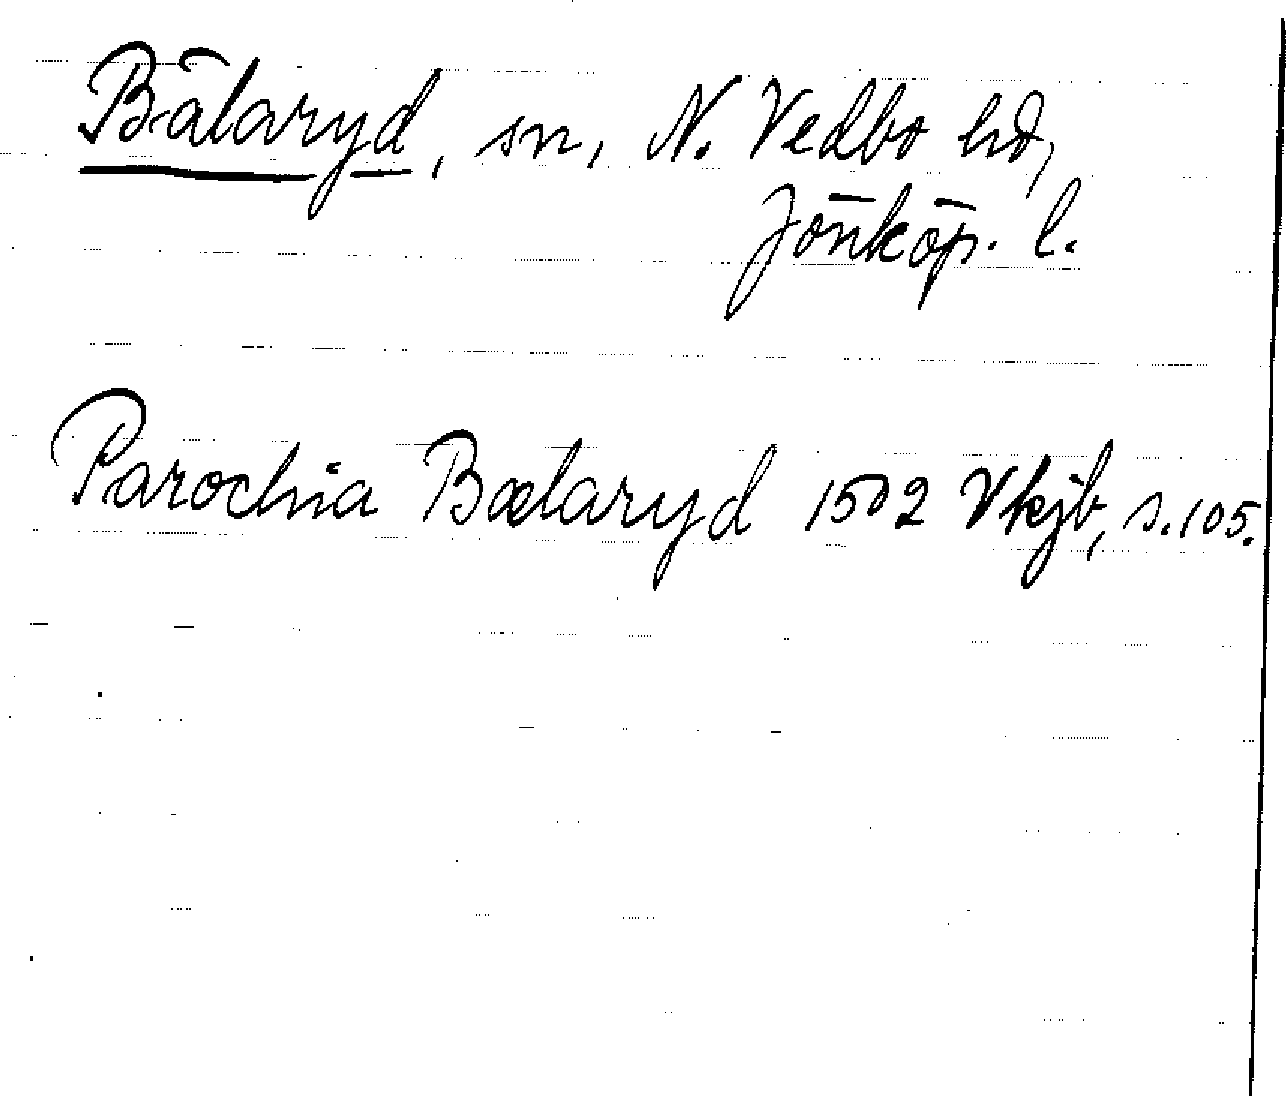 Bälaryd, sn, N. Vedbo hd,
Jönköp. l.
Parochia Bælaryd 1502 Vkjb, s. 105.